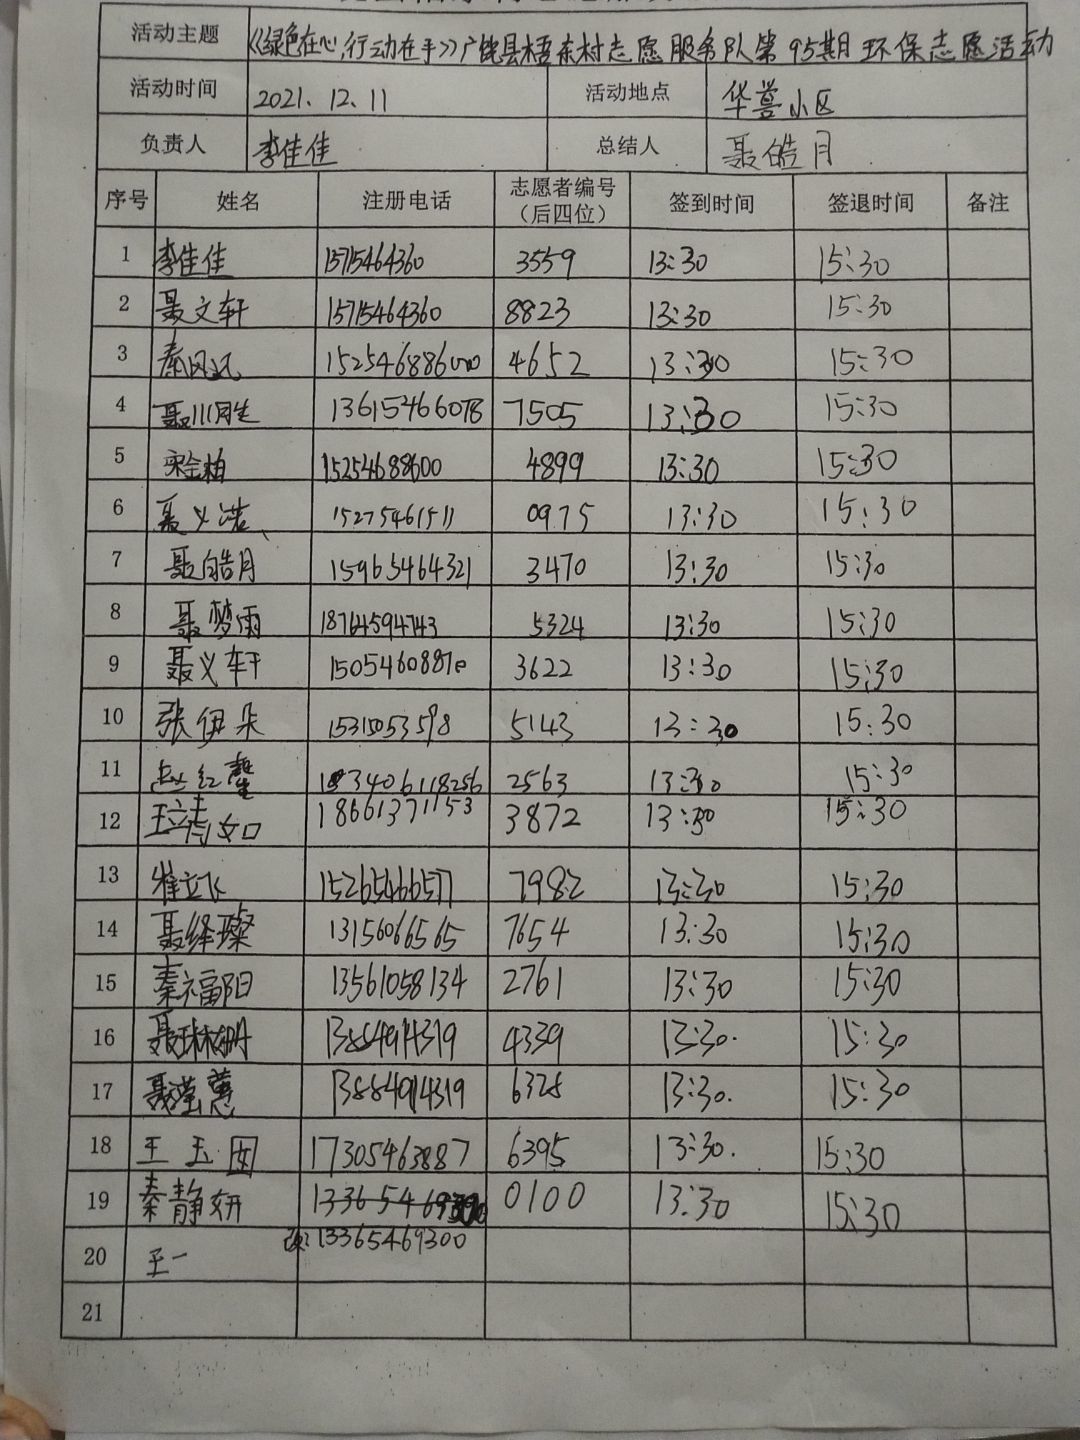 活动主题 《绿色在心,行动在手》广饶县梧东村志愿服务队第95期环保志愿活动
活动时间 2021.12.11 活动地点 华誉小区
负责人 李佳佳 总结人 聂皓月
序号 姓名 注册电话 志愿者编号（后四位） 签到时间 签退时间 备注
1 李佳佳 15715464360 3559 13:30 15:30
2 聂文轩 15715464360 8823 13:30 15:30
3 秦风远 4652 13:30 15:30
4 13615466078 7505 13:30 15:30
5 宋金柏 15254688600 4899 13:30 15:30
6 聂义浩 15275461511 0975 13:30 15:30
7 聂皓月 15965464321 3470 13:30 15:30
8 聂梦雨 18764594743 5324 13:30 15:30
9 聂义轩 15054608870 3622 13:30 15:30
10 张伊朵 15315053598 5143 13:30 15:30
11 赵红馨 2563 13:30 15:30
12 王靖如 18661371153 3872 13:30 15:30
13 崔立飞 15265466577 7982 13:30 15:30
14 聂绎璨 13156066565 7654 13:30 15:30
15 秦福阳 13561058134 2761 13:30 15:30
16 13884914319 4339 13:30. 15:30
17 聂滢蕙 13884914319 6328 13:30. 15:30
18 王玉囡 17305463887 6395 13:30. 15:30
19 秦静妍 0100 13:30 15:30
改:13365469300
20 王一
21